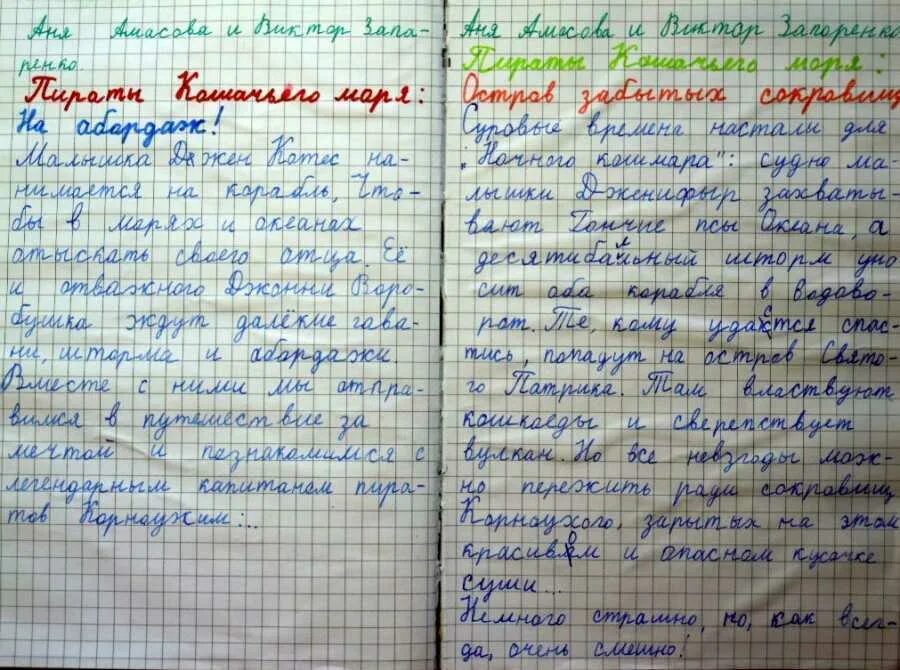 Аня Амасова и Виктор Запа-
ренко.
Пираты Кошачьего моря:
На абордаж!
Малышка Джен Котес на-
нимается на корабль, что-
бы в морях и океанах
отыскать своего отца. Её
и отважного Джонни Воро-
бушка ждут далёкие гава-
ни, шторма и абордажи.
Вместе с ними мы отпра-
вимся в путешествие за
мечтой и познакомимся с
легендарным капитаном пира-
тов Корноухим...
Аня Амасова и Виктор Запоренко
Пираты Кошачьего моря:
Остров забытых сокровищ
Суровые времена настали для
"Ночного кошмара": судно ма-
лышки Дженифыр захваты-
вают Гончие псы Океана, а
десятибалльный шторм уно
сит оба корабля в Водово-
рот. Те, кому удастся спас-
тись, попадут на остров Свято-
го Патрика. Там властвуют
кошкоеды и сверепствует
вулкан. Но все невзгоды мож-
но пережить ради сокровищ
Корноухого, зарытых на этом
красивом и опасном кусочке
суши...
Немного страшно, но, как всег-
да, очень смешно!